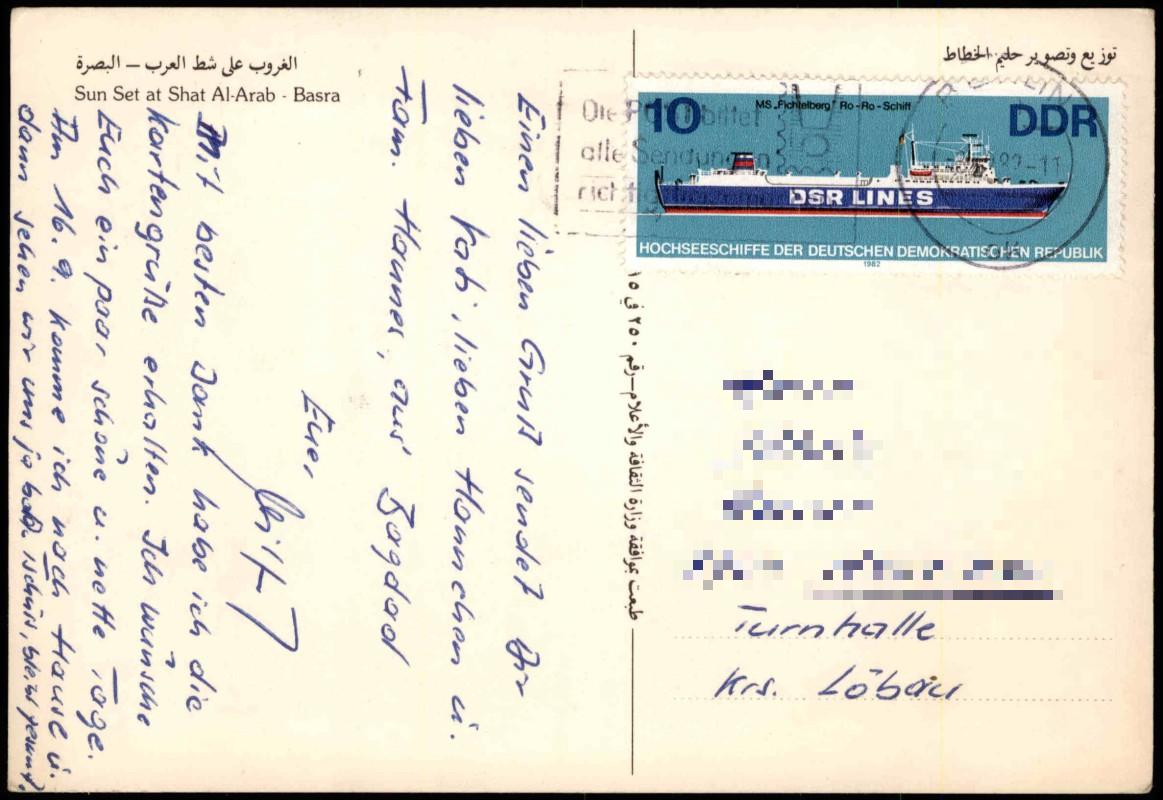 الغروب على شط العرب – البصرة
Sun Set at Shat Al-Arab - Basra
توزيع وتصوير حليم الخطاط
Einen lieben Gruß sendet Dir
lieben Kati, lieben Hannchen u.
Fam. Hannes, aus Bagdad
Euer
Mit besten Dank habe ich die
Kartengrüße erhalten. Ich wünsche
Euch ein paar schöne u. nette Tage.
Am 16.9. komme ich nach Hause u.
dann sehen wir uns ja bald
طبعت بموافقة وزارة الثقافة والأعلام–رقم ٢٥٠ في ١٥
Die Post bittet
alle Sendungen
BERLIN
10
MS „Fichtelberg" Ro-Ro-Schiff
DDR
DSR LINES
HOCHSEESCHIFFE DER DEUTSCHEN DEMOKRATISCHEN REPUBLIK
1982
Turnhalle
Krs. Löbau